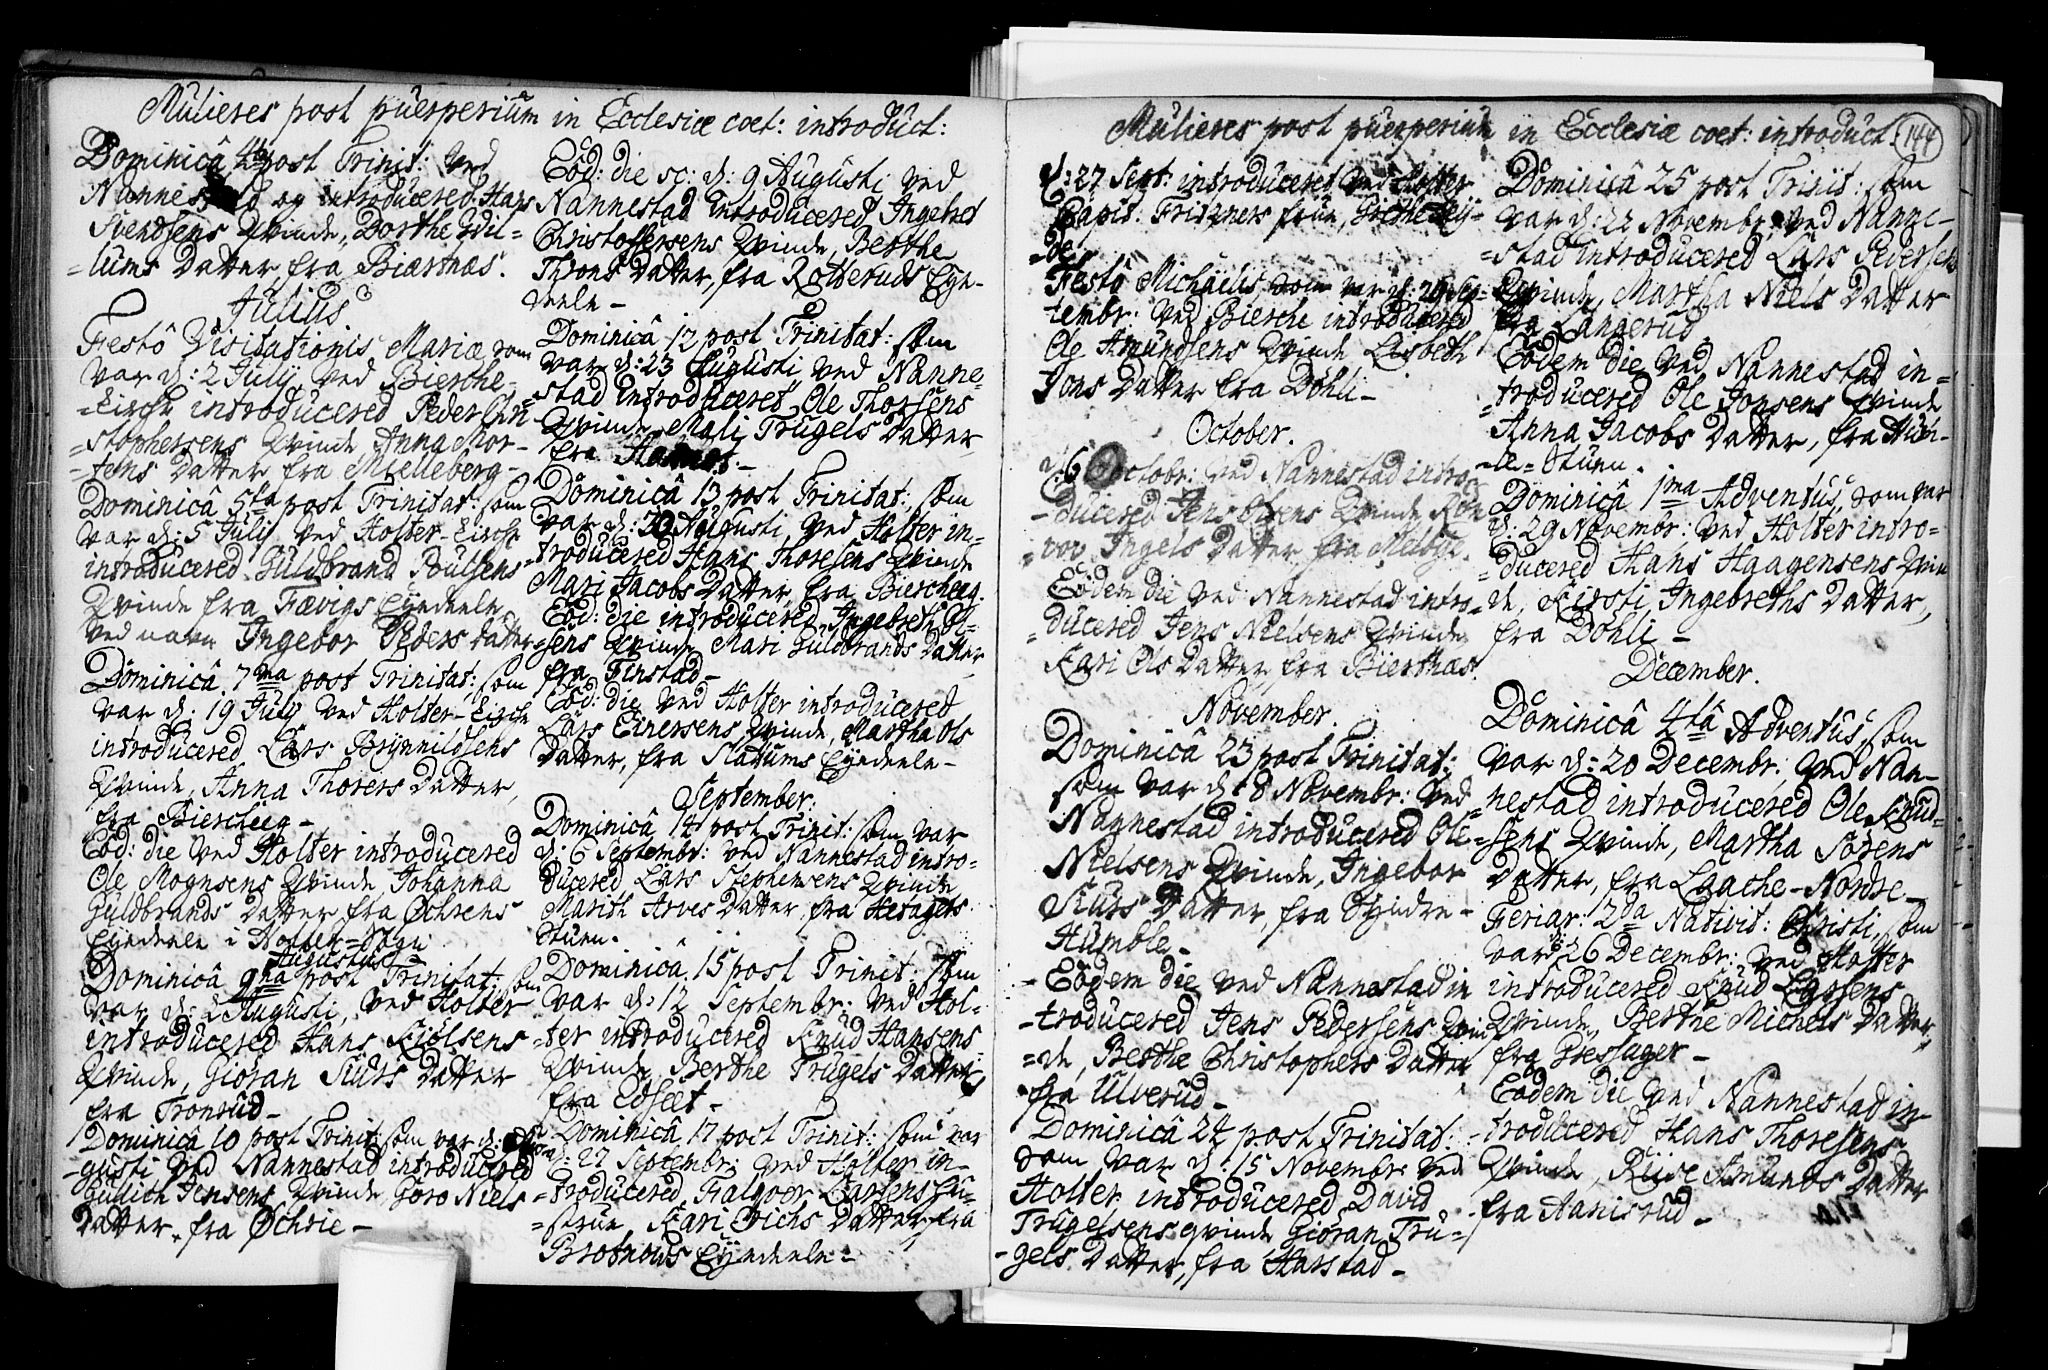 Mulieres post puerperium in Ecclesiæ coet: introduct:
Dominicâ 4ta post Trinit: ved
Nannestad og introducered Hans
Svendsens Qvinde, Dorthe Wil-
=lums Datter fra Biærtnæs.
Julius
Festô Visitationis Mariæ som
var d: 2 Julij ved Bierche-
=Kirche introducered Peder Chri
=stophersens Qvinde Anna Mor-
=tens Datter fra Mielleberg-
Dominicâ 5ta post Trinitat: som
var d: 5 Julij ved Holter-Kirche
introducered Guldbrand Poulsens
Qvinde fra Fævigs Eyedeele
ved navn Ingebor Peders Datter
Dominicâ 7ma post Trinitat: som
var d: 19 July ved Holter-Kirche
introducered Lars Brynnildsens
Qvinde, Anna Thorers Datter,
fra Biercheeg-
Eod: die ved Holter introducered
Ole Mognsens Qvinde Johanna
Guldbrands Datter fra Øchrens
Eyedeele i Holter=Sogn
Augustus
Dominicâ 9na post Trinitat: som
var d: 2 Augusti, ved Holter
introducered Hans Kiølsens
Qvinde, Giøran Siurs Datter
fra Tronrud-
Dominicâ 10 post Trinit: som var d:
-gusti ved Nannestad introducered
Gulich Jensens Qvinde Goro Niels
Datter fra Øchrie-
Eod: die sc: d: 9 Augusti ved
Nannestad introducered Ingebret
Christoffersens Qvinde, Berthe
Throns Datter, fra Rotteruds Eye-
deele-
Dominicâ 12 post Trinitat: som
var d: 23 Augusti ved Nanne-
=stad introduceret Ole Thorsens
Qvinde, Mali Trugels Datter
fra
Dominicâ 13 post Trinitat: som
var d: 30 Augusti, ved Holter in-
=troducered Hans Thoresens Qvinde
Mari Jacobs Datter fra Biercheeg.
Eod: die introducered Ingebreth Ol-
=sens Qvinde Mari Guldbrands Datter
fra Finstad-
Eod: die ved Holter introducered
Lars Einersens Qvinde, Martha Ols
Datter, fra Slatums Eyedeele-
September:
Dominicâ 14 post Trinit: som var
d: 6 Septembr: ved Nannestad intro-
ducered Lars Stephensens Qvinde
Marith Arves Datter fra Hexagers
Stuen.
Dominicâ 15 post Trinit: som
var d: 12 Septembr: ved Hol-
=ter introducered Knud Hansens
Qvinde Berthe Trugels Datter
fra Edseet-
Dominicâ 17 post Trinit: som var
d: 27 Septembr: ved Holter in-
=troducered, Falqvor Larsens Hu-
=strue, Kari Erichs Datter fra
Brotnouds Eyedeele-
Mulieres post puerperium in Ecclesiæ coet: introduct:
144
d: 27 Sept: introduceret ved Holter
Capit: Fritzners frue,
Festô Michaelis som var d: 29 Sep-
tembr: ved Bierche introducered
Ole Amundsens Qvinde Lisbeth
Jons Datter fra Døhli-
October.
Octobr: ved Nannestad intro-
-ducered Jens Olsens Qvinde Røn
=vov Ingels Datter fra
Eodem die ved Nannestad intro-
=ducered Jens Nielsens Qvinde
Kari Ols Datter, fra Biertnæs.
November.
Dominicâ 23 post Trinitat:
som var d: 8 Novembr: ved
Nannestad introducered Ole
Nielsens Qvinde, Ingebor
Siurs Datter, fra Søndre-
Humble-
-Eodem die ved Nannestad in
-troducered Jens Pedersens Qvin
=de, Berthe Christophers Datter
fra Ulverud-
Dominicâ 24 post Trinitat:
som var d: 15 Novembr ved
Holter introducered David
Trugelsens qvinde Giøran Tru-
-gels Datter, fra Harstad-
Dominicâ 25 post Trinit: som
var d: 22 Novembr: ved Nanne-
=stad introducered Lars Pedersens
Qvinde, Martha Niels Datter
fra Langerud
Eodem die ved Nannestad in-
=troducered Ole Jonsens Qvinde
Anna Jacobs Datter, fra
Stuen.
Dominicâ 1ma Adventus, som var
d: 29 Novembr: ved Holter intro-
=ducered Hans Haagensens Qvin
de, Kirsti Ingebreths Datter,
fra Døhli-
December.
Dominicâ 4tâ Adventus, som
var d: 20 Decembr: ved Nan-
-nestad introducered Ole Knud-
-sens Qvinde, Martha Sørens
Datter, fra Laache-Nordre-
Feriar: 2da Nativit: Christi, som
var d: 26 Decembr: ved Holter
introducered Knud
Qvinde, Berthe Michels Datter,
fra Gressager-
Eodem die ved Nannestad in
-troducered Hans Thoresens
Qvinde, Amunds Datter
fra Aanisrud-